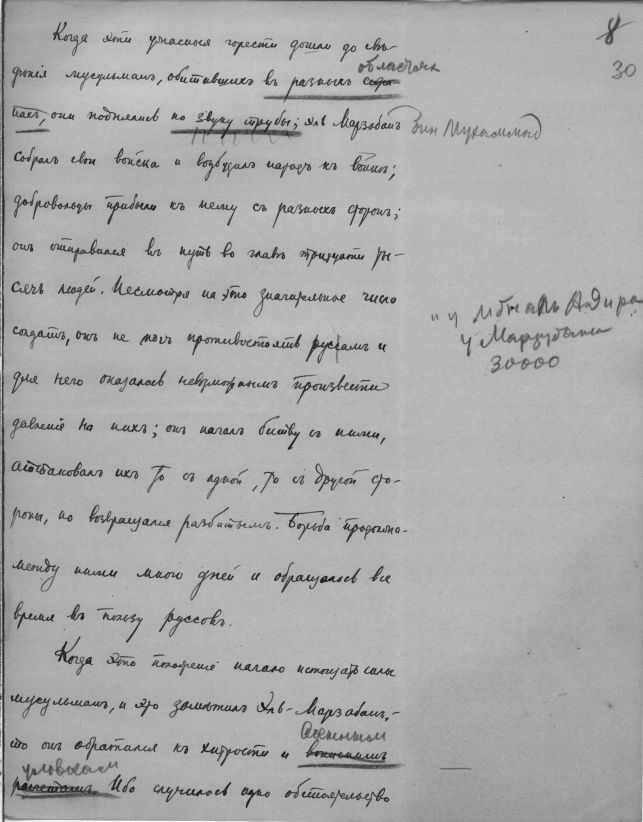 8
30
Когда эти ужасныя горести дошли до свѣ-
дѣнія мусульманъ, обитавшихъ въ разныхъ стра-
областяхъ
нахъ, они поднялись по звуку трубы; Эль Марзабанъ бин Мухаммад
собралъ свои войска и возбудилъ народъ къ войнѣ;
добровольцы прибыли къ нему съ разныхъ сторонъ;
онъ отправился въ путь во главѣ тридцати ты-
сячъ людей. Несмотря на это значительное число
солдатъ, онъ не могъ противостоять руссамъ и
для него оказалось невозможнымъ произвести
давленіе на нихъ; онъ началъ битву съ ними,
аттаковалъ ихъ то съ одной, то съ другой сто-
роны, но возвращался разбитымъ. Борьба продолжа-
между ними много дней и обращалась все
время въ пользу руссовъ.
Когда это положеніе начало истощать силы
мусульманъ, и это замѣтилъ Эль-Марзабанъ,-
то онъ обратился къ хитрости и
уловкам
Ибо случилось одно обстоятельство
и у Ибн аль Адира
у Марзубана
30000